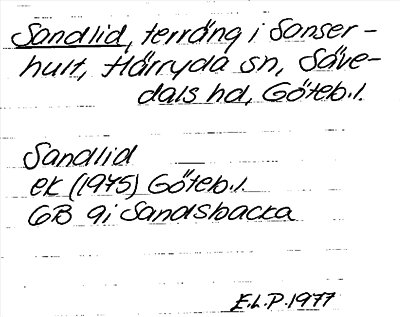 Sandlid, terräng i Sonser-
hult, Härryda sn, Säve-
dals hd, Göteb.l.
Sandlid
ek (1975) Göteb.l.
6B 9i Sandsbacka
E.L.P. 1977